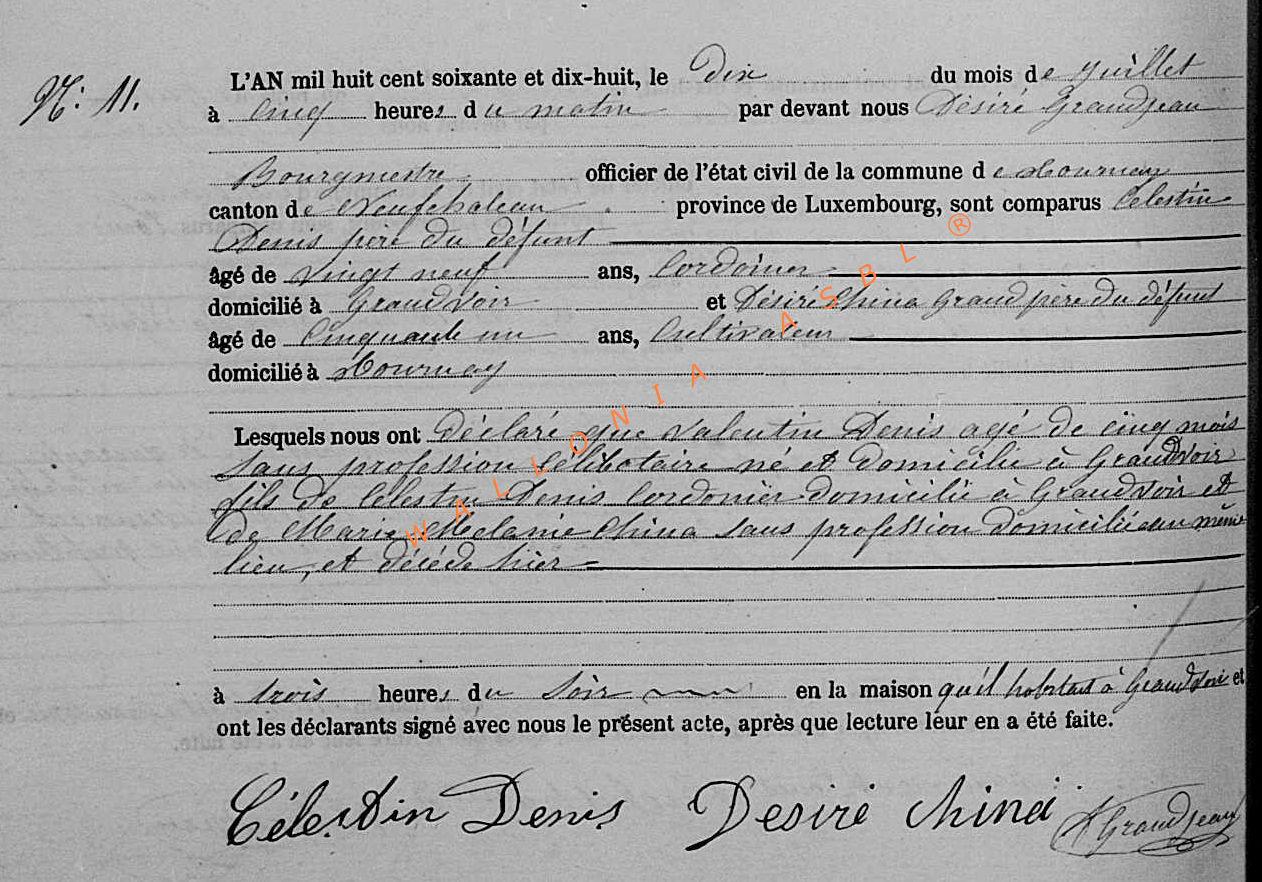 N: 11.
L'AN mil huit cent soixante et dix-huit, le Dix du mois de Juillet
à Cinq heures du matin par devant nous Désiré Grandjean
Bourgmestre officier de l'état civil de la commune de Tournay
canton de Neufchateau province de Luxembourg, sont comparus Célestin
Denis père du défunt
âgé de vingt neuf ans, Cordonier
domicilié à Grandvoir et Désiré China Grand père du défunt
âgé de Cinquante un ans, Cultivateur
domicilié à Tournay
Lesquels nous ont déclaré que Valentin Denis agé de cinq mois
sans profession Célibataire né et domicilié à Grandvoir
fils de Célestin Denis Cordonier domicilié à Grandvoir et
de Marie Melanie China sans profession domiciliée au même
lieu, et décédé hier
à trois heures du soir en la maison qu'il habitait à Grandvoir et
ont les déclarants signé avec nous le présent acte, après que lecture leur en a été faite.
Célestin Denis Desiré China D Grandjean
WALLONIA ASBL ®